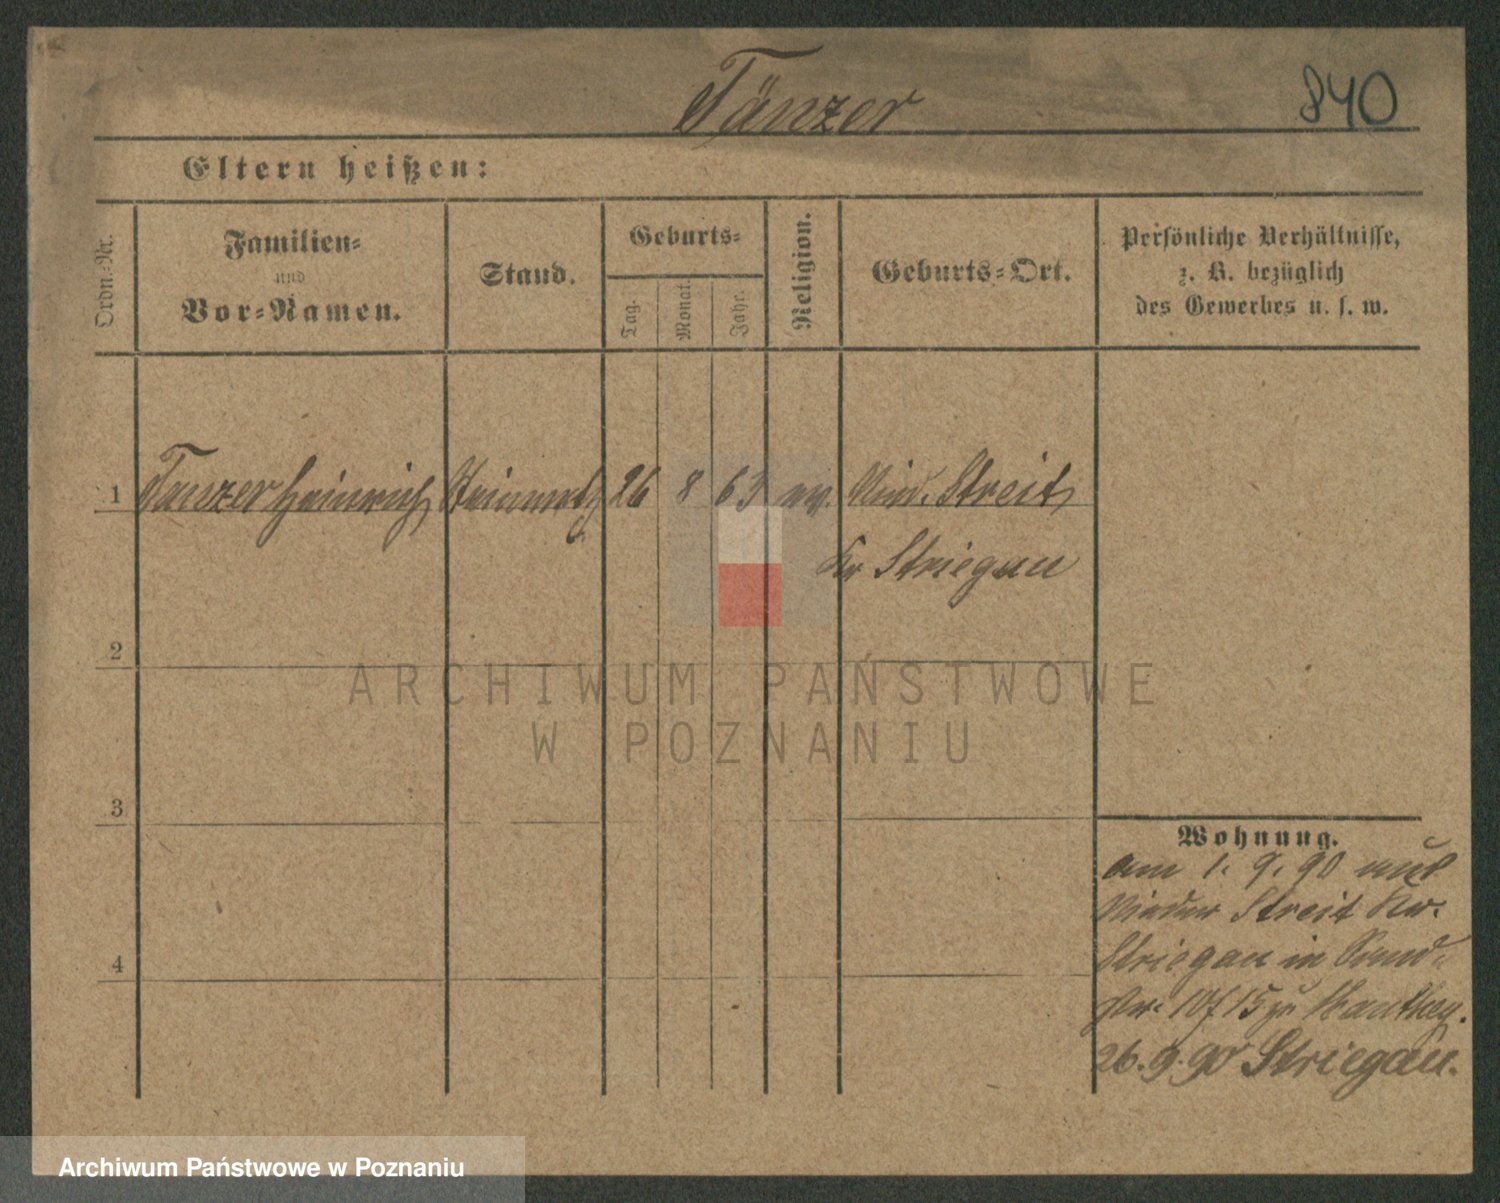 Tänzer
840
Eltern heißen:
Ordn.-Nr.
Familien-
und
Vor-Namen.
Stand.
Geburts-
Tag.
Monat.
Jahr.
Religion.
Geburts-Ort.
Persönliche Verhältnisse,
z. B. bezüglich
des Gewerbes u. s. w.
1 Tanzer Heinrich Steinmetz 26 8 63 ev. Nied. Streit
Kr Striegau
2
3
4
Wohnung.
am 1. 9. 90 aus
Nieder Streit Kr.
Striegau in
10/15 zu
26. 9. 90 Striegau.
ARCHIWUM PAŃSTWOWE
W POZNANIU
Archiwum Państwowe w Poznaniu